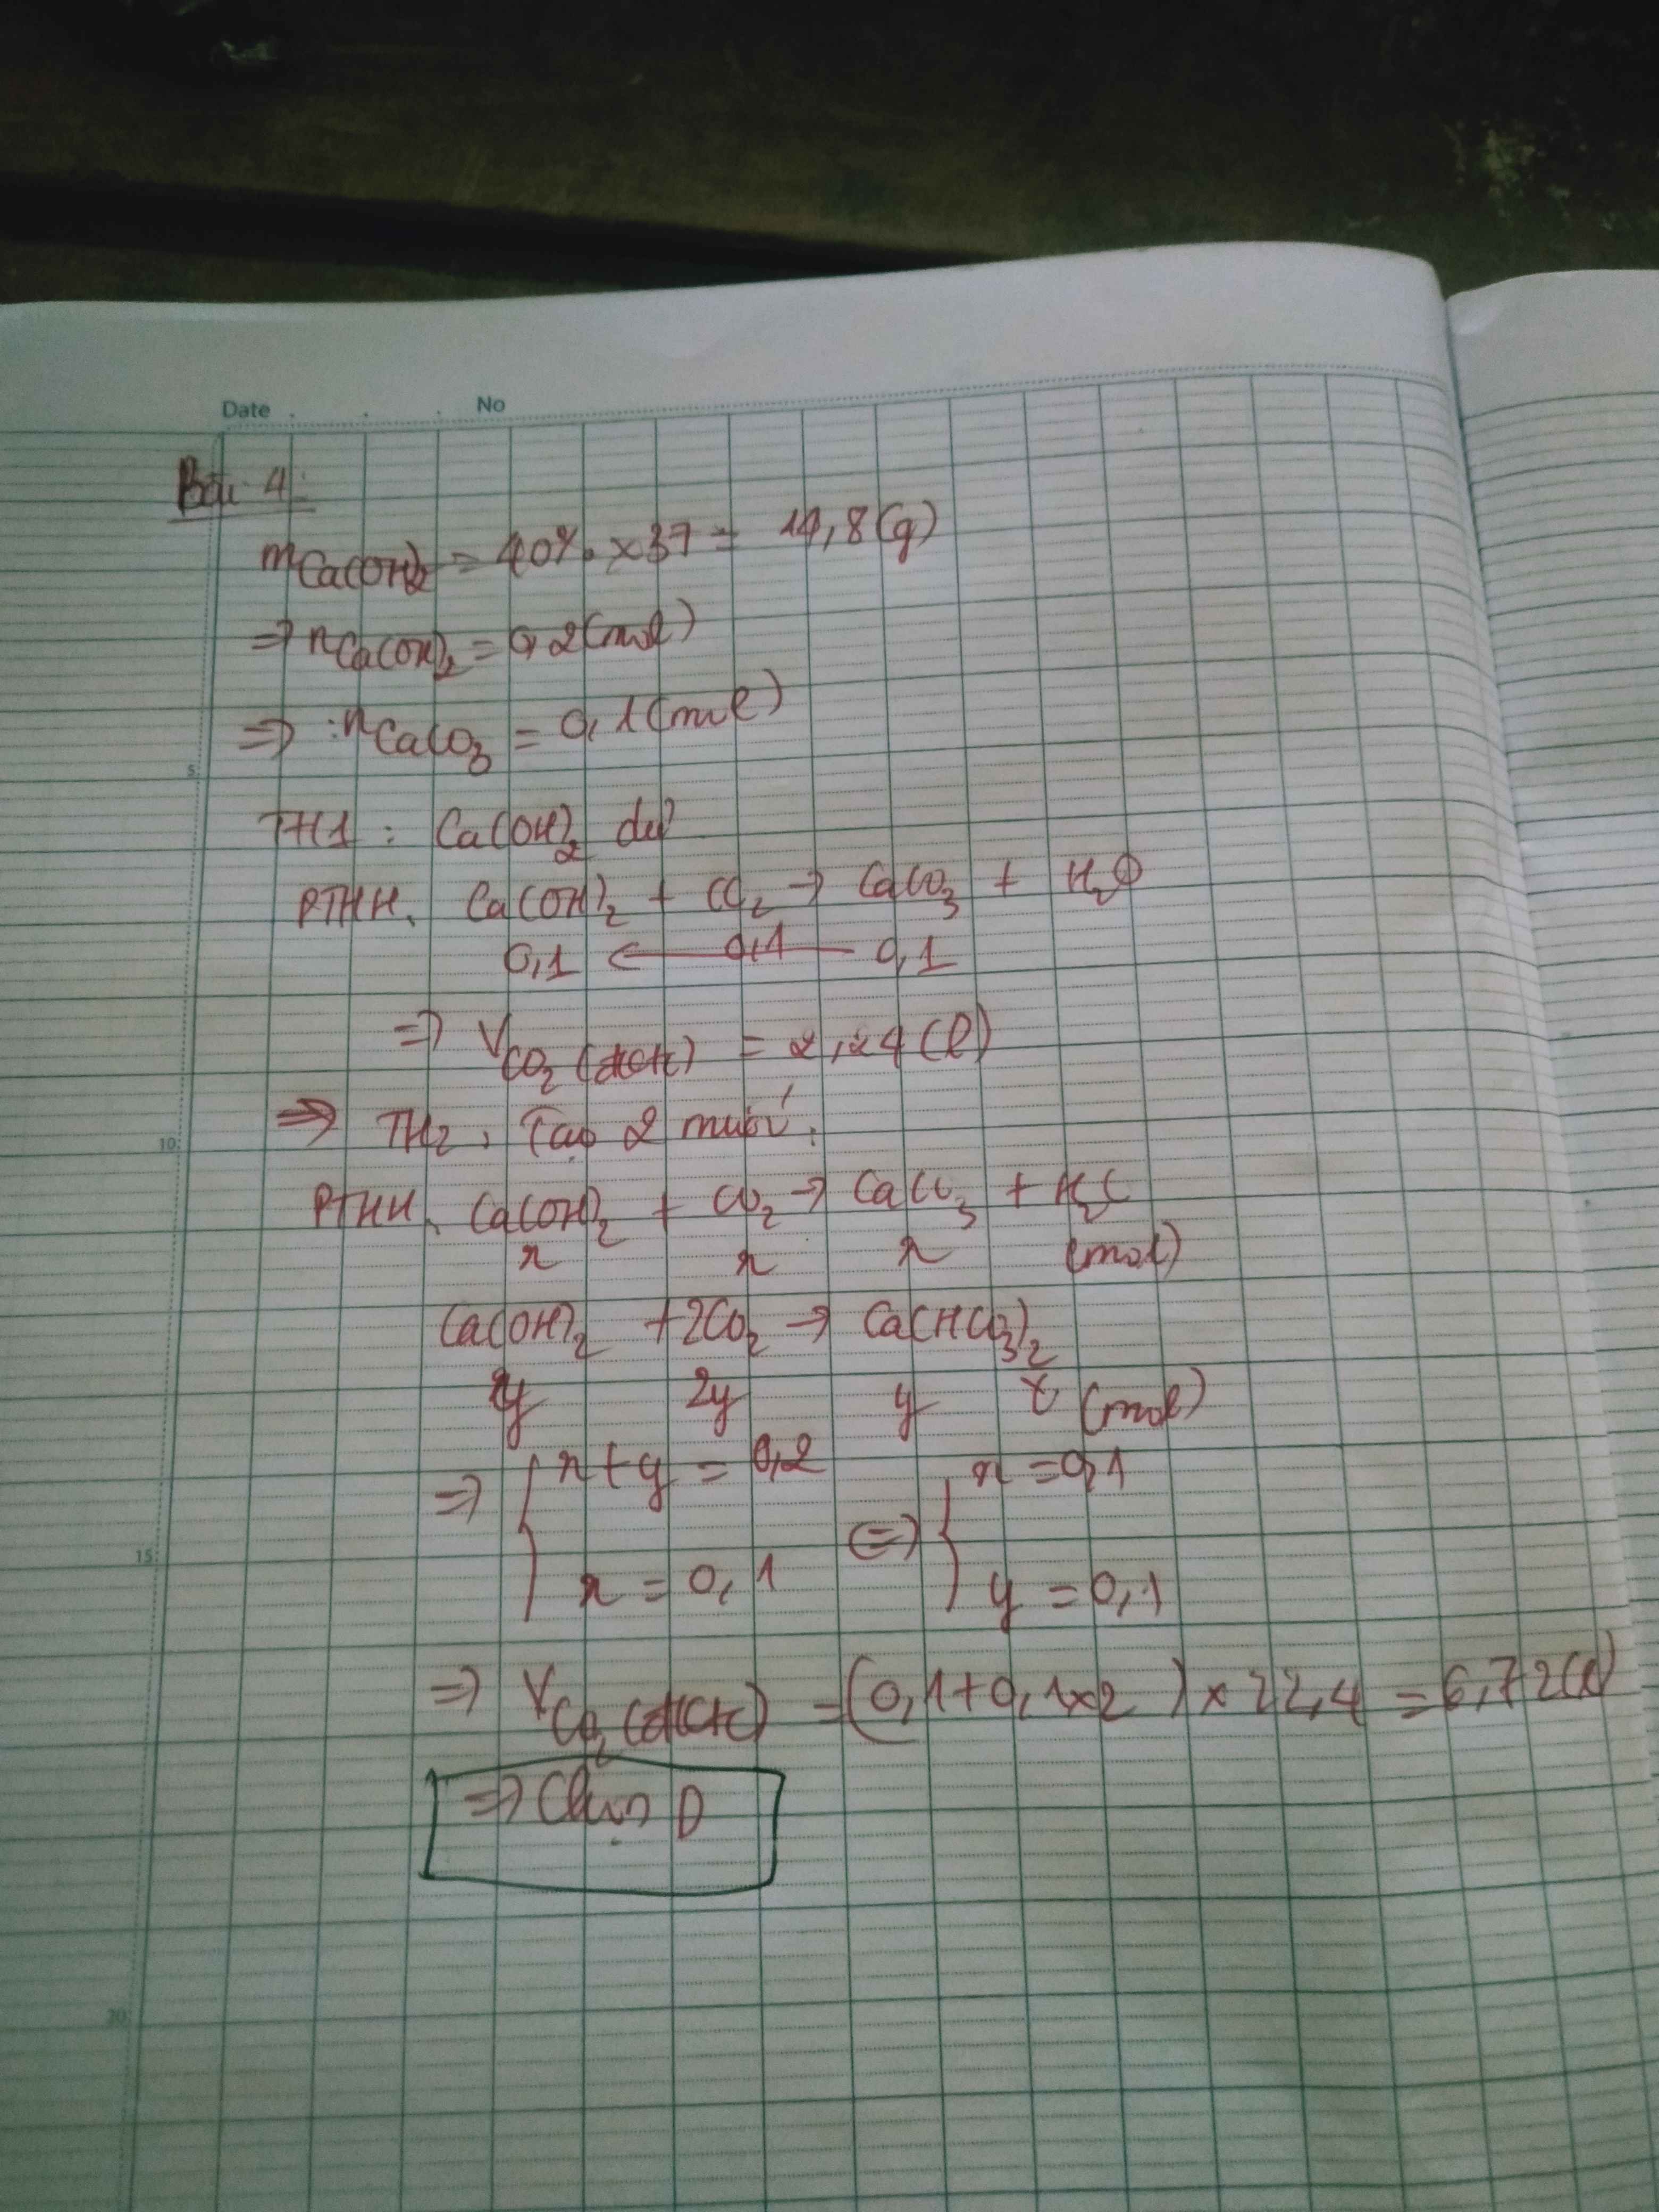 Date . . . No
Bài 4:
mCa(OH)2 = 40% x 37 = 14,8(g)
=> nCa(OH)2 = 0,2(mol)
5
=> : nCaCO3 = 0,1(mol)
TH1 : Ca(OH)2 dư
PTHH. Ca(OH)2 + CO2 → CaCO3 + H2O
0,1 ← 0,1 — 0,1
=> VCO2 (đktc) = 2,24(l)
10
=> TH2. Tạo 2 muối.
PTHH. Ca(OH)2 + CO2 → CaCO3 + H2O
x x x (mol)
Ca(OH)2 + 2CO2 → Ca(HCO3)2
y 2y y (mol)
=> { x + y = 0,2 <=> { x = 0,1
15
x = 0,1 y = 0,1
=> VCO2 (đktc) = (0,1+0,1x2) x 22,4 = 6,72(l)
=> Chọn D
20